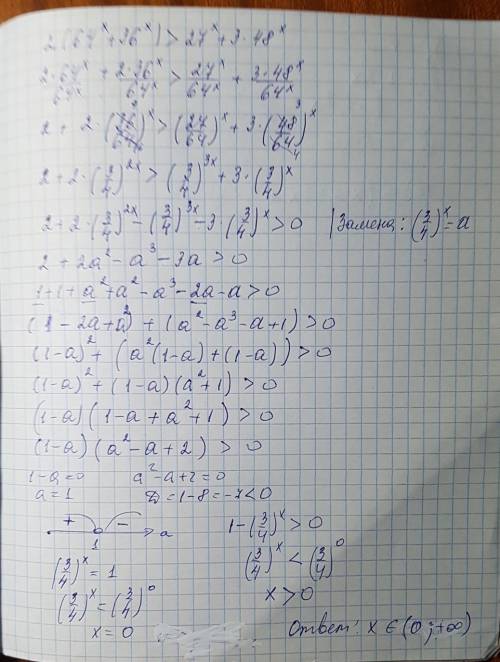 2(64^x+36^x) > 27^x+3·48^x
2·64^x/64^x + 2·36^x/64^x > 27^x/64^x + 3·48^x/64^x
2 + 2·(36/64)^x > (27/64)^x + 3·(48/64)^x
2+2·(3/4)^2x > (3/4)^3x + 3·(3/4)^x
2+2·(3/4)^2x − (3/4)^3x − 3·(3/4)^x > 0 | Замена: (3/4)^x = a
2 + 2a² − a³ − 3a > 0
1+1+a²+a²−a³−2a−a > 0
(1−2a+a²) + (a²−a³−a+1) > 0
(1−a)² + (a²(1−a)+(1−a)) > 0
(1−a)² + (1−a)(a²+1) > 0
(1−a)(1−a+a²+1) > 0
(1−a)(a²−a+2) > 0
1−a=0 a²−a+2=0
a=1 D=1−8=−7<0
+ − a
1
1−(3/4)^x > 0
(3/4)^x = 1 (3/4)^x < (3/4)^0
(3/4)^x = (3/4)^0 x > 0
x = 0 Ответ: x ∈ (0; +∞)